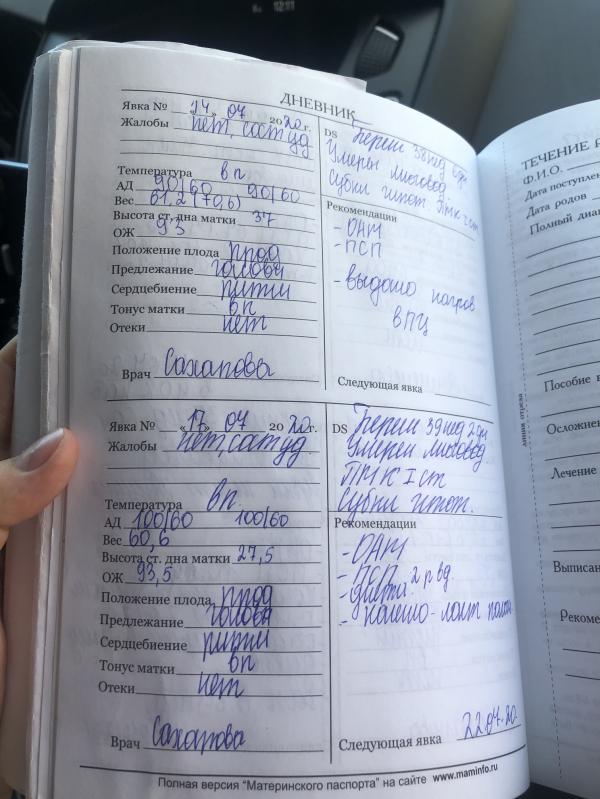 12:11
ДНЕВНИК
Явка № «14» 04 2020г.
Жалобы нет, сост уд
Температура вп.
АД 90/60 90/60
Вес 61.2 (70,6)
Высота ст. дна матки 37
ОЖ 93
Положение плода прод
Предлежание голова
Сердцебиение ритм
Тонус матки вп
Отеки нет
Врач Сахапова
DS Берем 38 нед 6 дн
Умерен многовод
Субкл гипот ПМК I ст
Рекомендации
- ОАМ
- ПСП
- выдано направ
в ПЦ
Следующая явка
Явка № «17» 04 2020г.
Жалобы нет, сост уд.
Температура вп.
АД 100/60 100/60
Вес 60,6
Высота ст. дна матки 27,5
ОЖ 93,5
Положение плода прод
Предлежание голова
Сердцебиение ритм
Тонус матки вп
Отеки нет
Врач Сахапова
DS Берем 39 нед 2 дн
Умерен многовод
ПМК I ст
Субкл гипот.
Рекомендации
- ОАМ
- ПСП
- диета 2 р вд.
Следующая явка 22.04.20
Полная версия "Материнского паспорта" на сайте www.maminfo.ru
линия отреза
ТЕЧЕНИЕ
Ф.И.О.
Дата поступлен
Дата родов
Полный диа
Пособие
Осложнен
Лечение
Выписан
Рекоме